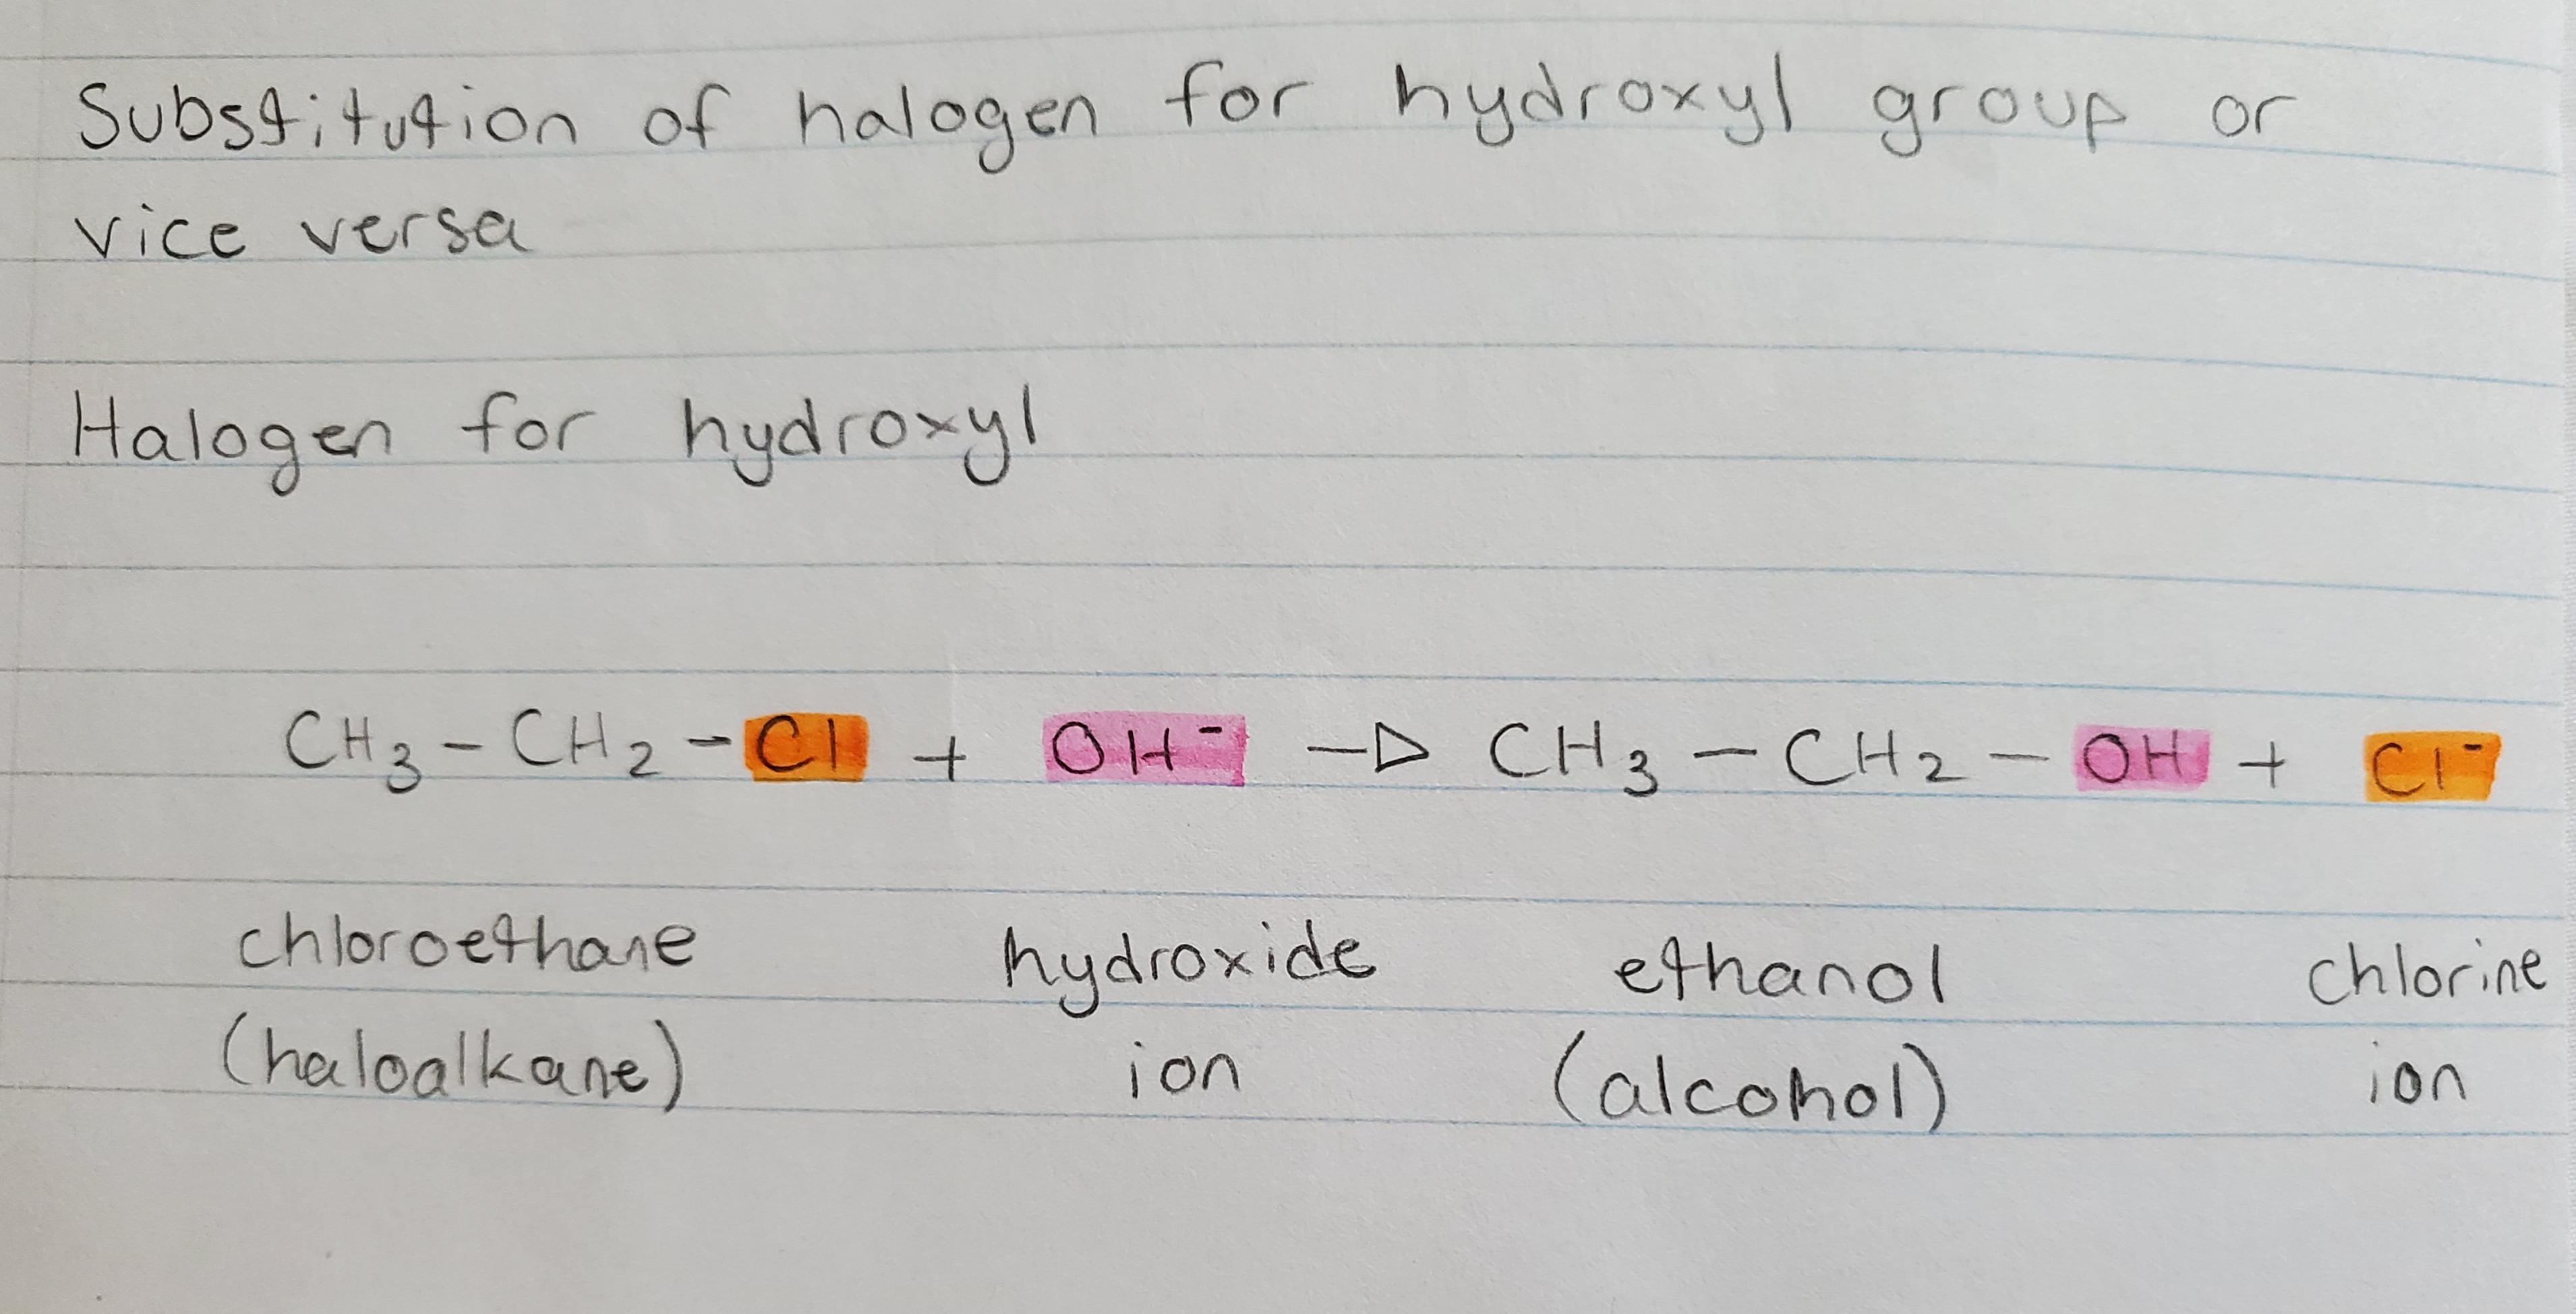 Substitution of halogen for hydroxyl group or
vice versa
Halogen for hydroxyl
CH₃ - CH₂ - Cl + OH⁻ → CH₃ - CH₂ - OH + Cl⁻
chloroethane hydroxide ethanol chlorine
(haloalkane) ion (alcohol) ion